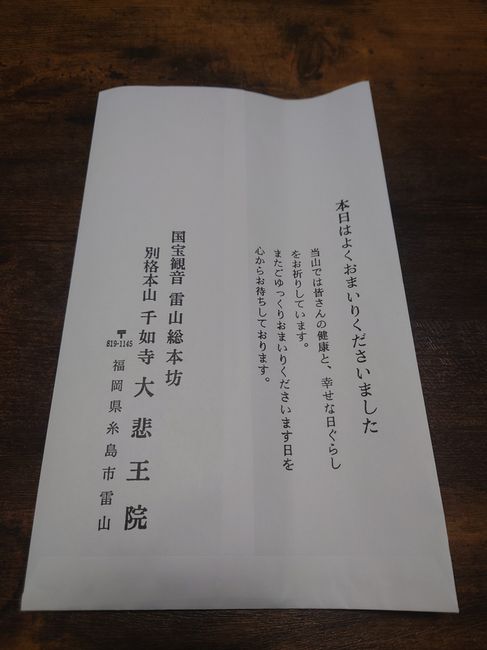 本日はよくおまいりくださいました
当山では皆さんの健康と、幸せな日ぐらし
をお祈りしています。
またごゆっくりおまいりくださいます日を
心からお待ちしております。
国宝観音 雷山総本坊
別格本山 千如寺 大悲王院
〒819-1145
福岡県糸島市雷山